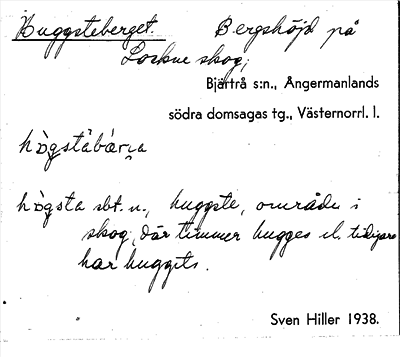 Huggsteberget. Bergshöjd på
Lockne skog,
Bjärtrå s:n., Ångermanlands
södra domsagas tg., Västernorrl. l.
högsta sbt. n., huggste, område i
skog, där timmer hugges el. tidigare
har huggits.
Sven Hiller 1938.